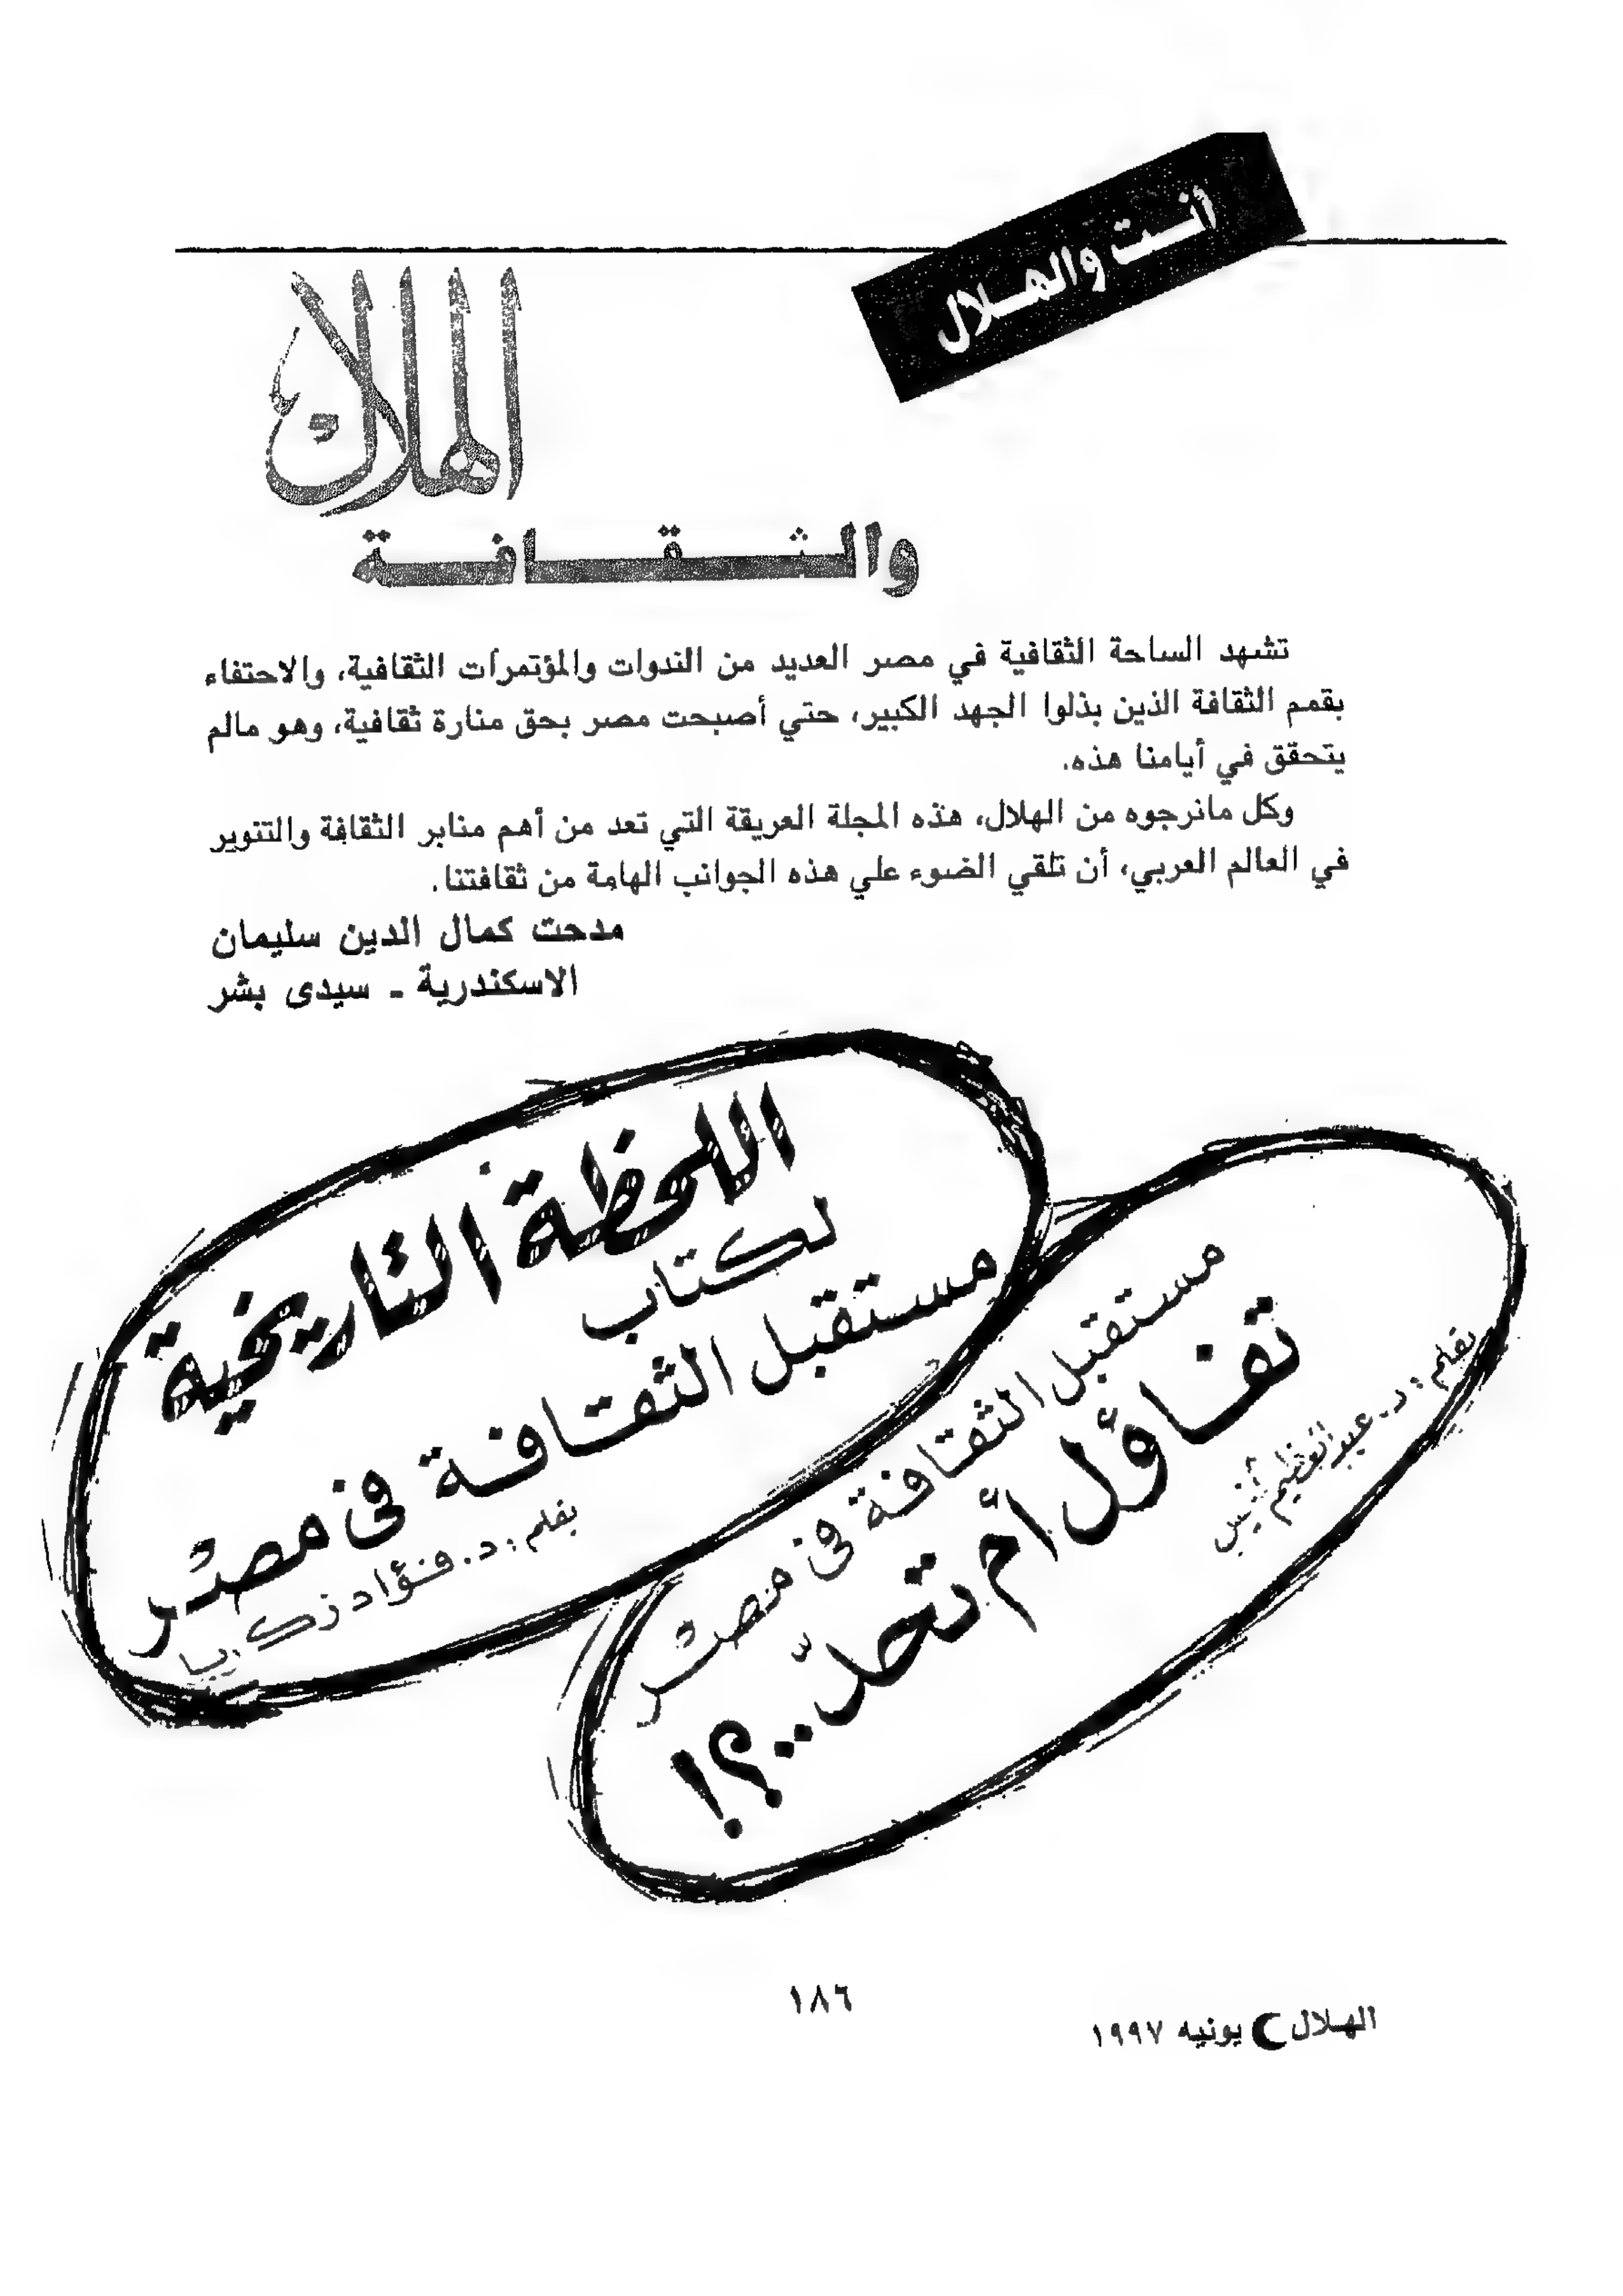 أنت والهلال
الهلال
والثقافة
تشهد الساحة الثقافية في مصر العديد من الندوات والمؤتمرات الثقافية، والاحتفاء
بقمم الثقافة الذين بذلوا الجهد الكبير، حتي أصبحت مصر بحق منارة ثقافية، وهو مالم
يتحقق في أيامنا هذه.
وكل مانرجوه من الهلال، هذه المجلة العريقة التي تعد من أهم منابر الثقافة والتنوير
في العالم العربي، أن تلقي الضوء علي هذه الجوانب الهامة من ثقافتنا.
مدحت كمال الدين سليمان
الاسكندرية ـ سيدى بشر
اللحظة التاريخية
لكتاب
مستقبل الثقافة فى مصر
بقلم : د. فؤاد زكريا
مستقبل الثقافة فى مصر
تفاؤل أم تحدّ..؟!
بقلم : د. عبدالعظيم أنيس
١٨٦
الهلال يونيه ١٩٩٧